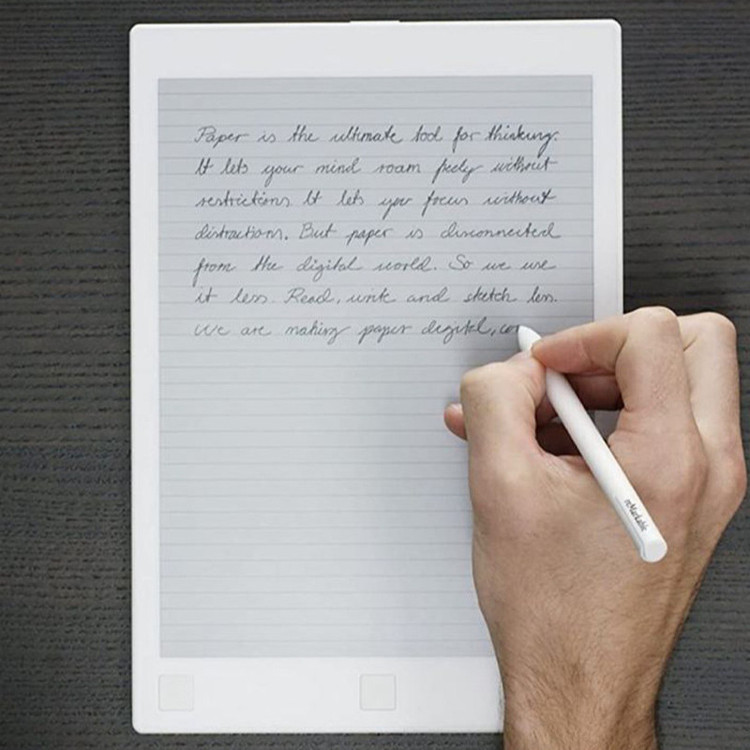 Paper is the ultimate tool for thinking.
It lets your mind roam freely without
restrictions It lets you focus without
distractions. But paper is disconnected
from the digital world. So we use
it less. Read, write and sketch less.
We are making paper digital, con
reMarkable